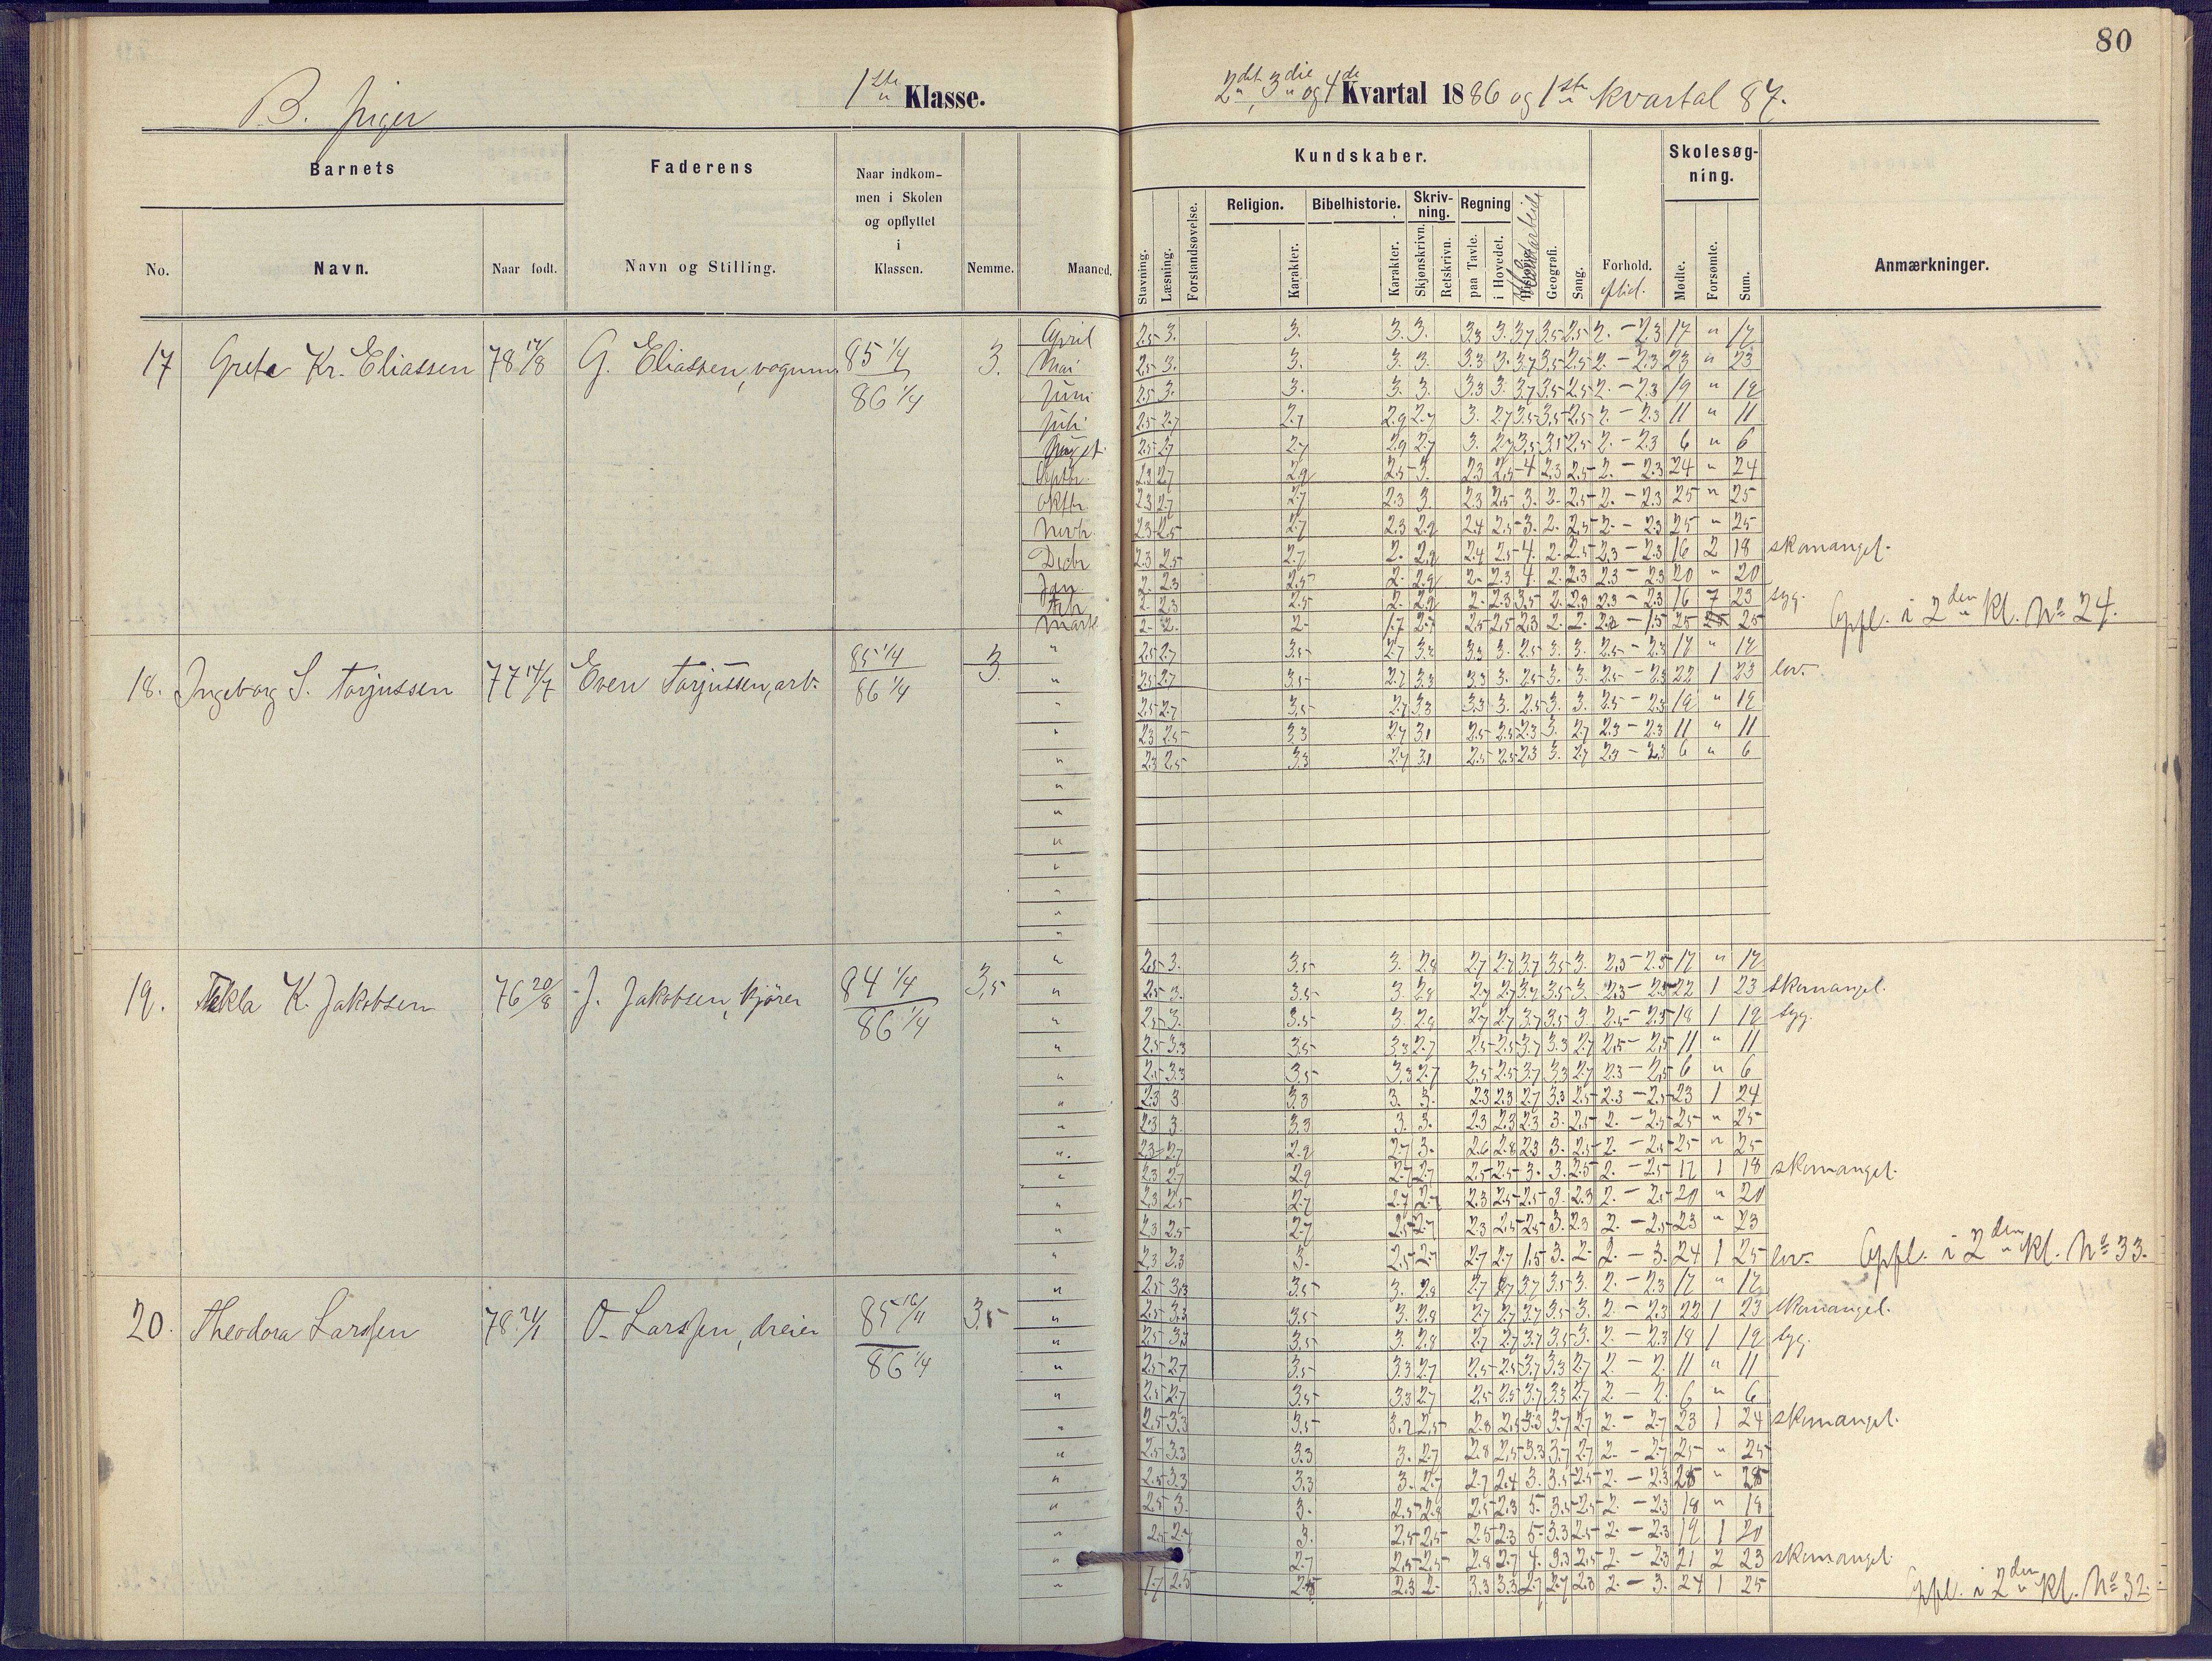 80
B. piger
1ste Klasse.
2det, 3die og 4de Kvartal 1886 og 1ste kvartal 87.
Barnets
Faderens
Naar indkommen i Skolen og opflyttet i Klassen.
Nemme.
Maaned.
No.
Navn.
Naar født.
Navn og Stilling.
Kundskaber.
Skolesøgning.
Stavning.
Læsning.
Forstandsøvelse.
Religion.
Karakter.
Bibelhistorie.
Karakter.
Skrivning.
Skjønskrivn.
Retskrivn.
Regning
paa Tavle.
i Hovedet.
Historie.
Haandarbeide
Geografi.
Sang.
Forhold.
flid.
Mødte.
Forsømte.
Sum.
Anmærkninger.
17 Grete Kr. Eliassen 78 17/8 G. Eliassen, vognm. 85 1/4 86 1/4 3.
April 2.5 3. 3. 3. 3. 3.3 3. 3.7 3.5 2.5 2. - 2.3 17 " 17
Mai 2.5 3. 3. 3. 3. 3.3 3. 3.7 3.5 2.5 2. - 2.3 23 " 23
Juni 2.5 3. 3. 3. 3. 3.3 3. 3.7 3.5 2.5 2. - 2.3 19 " 19
Juli 2.5 2.7 2.7 2.9 2.7 3. 2.7 3.5 3.5 2.5 2. - 2.3 11 " 11
August 2.5 2.7 2.7 2.9 2.7 3. 2.7 3.5 3.1 2.5 2. - 2.3 6 " 6
Septbr. 2.3 2.7 2.9 2.5 3. 2.3 2.5 4 2.3 2.5 2. - 2.3 24 " 24
Oktbr. 2.3 2.7 2.7 2.3 3. 2.3 2.5 3. 2. 2.5 2. - 2.3 25 " 25
Novbr. 2.3 2.5 2.7 2.3 2.9 2.4 2.5 3. 2. 2.5 2. - 2.3 25 " 25
Decbr 2.3 2.5 2.7 2. 2.9 2.4 2.5 4. 2. 2.5 2.3 - 2.3 16 2 18 skomangel.
Jan 2. 2.3 2.5 2. 2.9 2. 2.3 4. 2. 2.3 2.3 - 2.3 20 " 20
Feb. 2. 2.3 2.5 2. 2.9 2. 2.3 3.5 2. 2.3 2.3 - 2.3 16 7 23 syg.
Marts 2. 2. 2. 1.7 2.7 2.5 2.5 2.3 2. 2. - 1.5 25 25 Opfl. i 2den kl. No 24.
18. Ingeborg S. Torjussen 77 14/7 Even Torjussen, arb. 85 1/4 86 1/4 3.
" 2.5 2.7 3.5 2.7 3.3 3.3 3. 2.5 3. 3. 2.5 - 2.3 17 " 17
" 2.5 2.7 3.5 2.7 3.3 3.3 3. 2.5 3. 3. 2.5 - 2.3 22 1 23 lov.
" 2.5 2.7 3.5 2.7 3.3 3.3 3. 2.5 3. 3. 2.5 - 2.3 19 " 19
" 2.3 2.5 3.3 2.7 3.1 2.5 2.5 2.3 3. 2.7 2.3 - 2.3 11 " 11
" 2.3 2.5 3.3 2.7 3.1 2.5 2.5 2.3 3. 2.7 2.3 - 2.3 6 " 6
19. Tekla K. Jakobsen 76 20/8 J. Jakobsen, kjører 84 1/4 86 1/4 3,5
" 2.5 3. 3.5 3. 2.8 2.7 2.7 3.7 3.5 3. 2.5 - 2.5 17 " 17
" 2.5 3. 3.5 3. 2.8 2.7 2.7 3.7 3.5 3. 2.3 - 2.5 22 1 23 skomangel.
" 2.5 3. 3.5 3. 2.8 2.7 2.7 3.7 3.5 3. 2.5 - 2.5 18 1 19 syg.
" 2.5 3.3 3.5 3.3 2.7 2.5 2.5 3.7 3.3 2.7 2.5 - 2.5 11 " 11
" 2.5 3.3 3.5 3.3 2.7 2.5 2.5 3.7 3.3 2.7 2.3 - 2.5 6 " 6
" 2.3 3 3.3 3. 3. 2.3 2.3 2.7 3.3 2.5 2.3 - 2.5 23 1 24
" 2.3 3. 3.3 3. 3. 2.3 2.3 2.3 3. 2.5 2. - 2.5 25 " 25
" 2.3 2.7 2.9 2.7 3. 2.6 2.8 2.3 3. 2.5 2. - 2.5 25 " 25
" 2.3 2.7 2.9 2.7 2.7 2.5 2.5 3. 3. 2.5 2. - 2.5 17 1 18 skomangel.
" 2.3 2.5 2.7 2.7 2.7 2.3 2.5 2.5 3. 2.3 2. - 2.5 20 " 20
" 2.3 2.5 2.7 2.5 2.7 2.3 2.5 2.5 3. 2.3 2. - 2.5 23 " 23
" 2.3 2.3 3. 2.5 2.7 2.7 2.7 1.5 3. 2. 2. - 3. 24 1 25 lov. Opfl. i 2den kl. No 33.
20. Theodora Larssen 78 24/1 O. Larssen, dreier 85 16/11 86 1/4 3.5
" 2.5 3.3 3.5 3. 2.8 2.7 2.7 3.7 3.5 3. 2. - 2.3 17 " 17
" 2.5 3.3 3.5 3. 2.8 2.7 2.7 3.7 3.5 3. 2. - 2.3 22 1 23 skomangel.
" 2.5 3.3 3.5 3. 2.8 2.7 2.7 3.7 3.5 3. 2. - 2.3 18 1 19 syg.
" 2.5 2.7 3.5 3.3 2.7 2.5 2.5 3.7 3.3 2.7 2. - 2. 11 " 11
" 2.5 2.7 3.5 3.3 2.7 2.5 2.5 3.7 3.3 2.7 2. - 2. 6 " 6
" 2.5 3.3 3.5 3.2 2.5 2.8 2.5 3.3 3.7 2.7 2. - 2.7 23 1 24 skomangel.
" 2.5 3.3 3.3 3. 2.7 2.8 2.5 3.3 3.7 2.7 2. - 2.7 25 " 25
" 2.5 3.3 3.3 3. 2.7 2.7 2.4 3. 3.5 2.5 2. - 2.3 25 " 25
" 2.5 3. 3. 2.5 2.8 2.5 2.3 5. 3.5 2.5 2. - 2.3 18 " 18
" 2.5 3. 2.5 2.5 2.5 2.3 5. 3.3 2.5 2. - 2.3 19 1 20
" 2.7 2.5 2.5 2.8 2.7 4. 3.3 2.5 2. - 2.3 21 2 23 skomangel.
" 1.7 2.5 2.3 2. 3.3 3.3 2.7 2.7 2.3 2. - 3. 24 1 25 Opfl. i 2den kl. No 32.